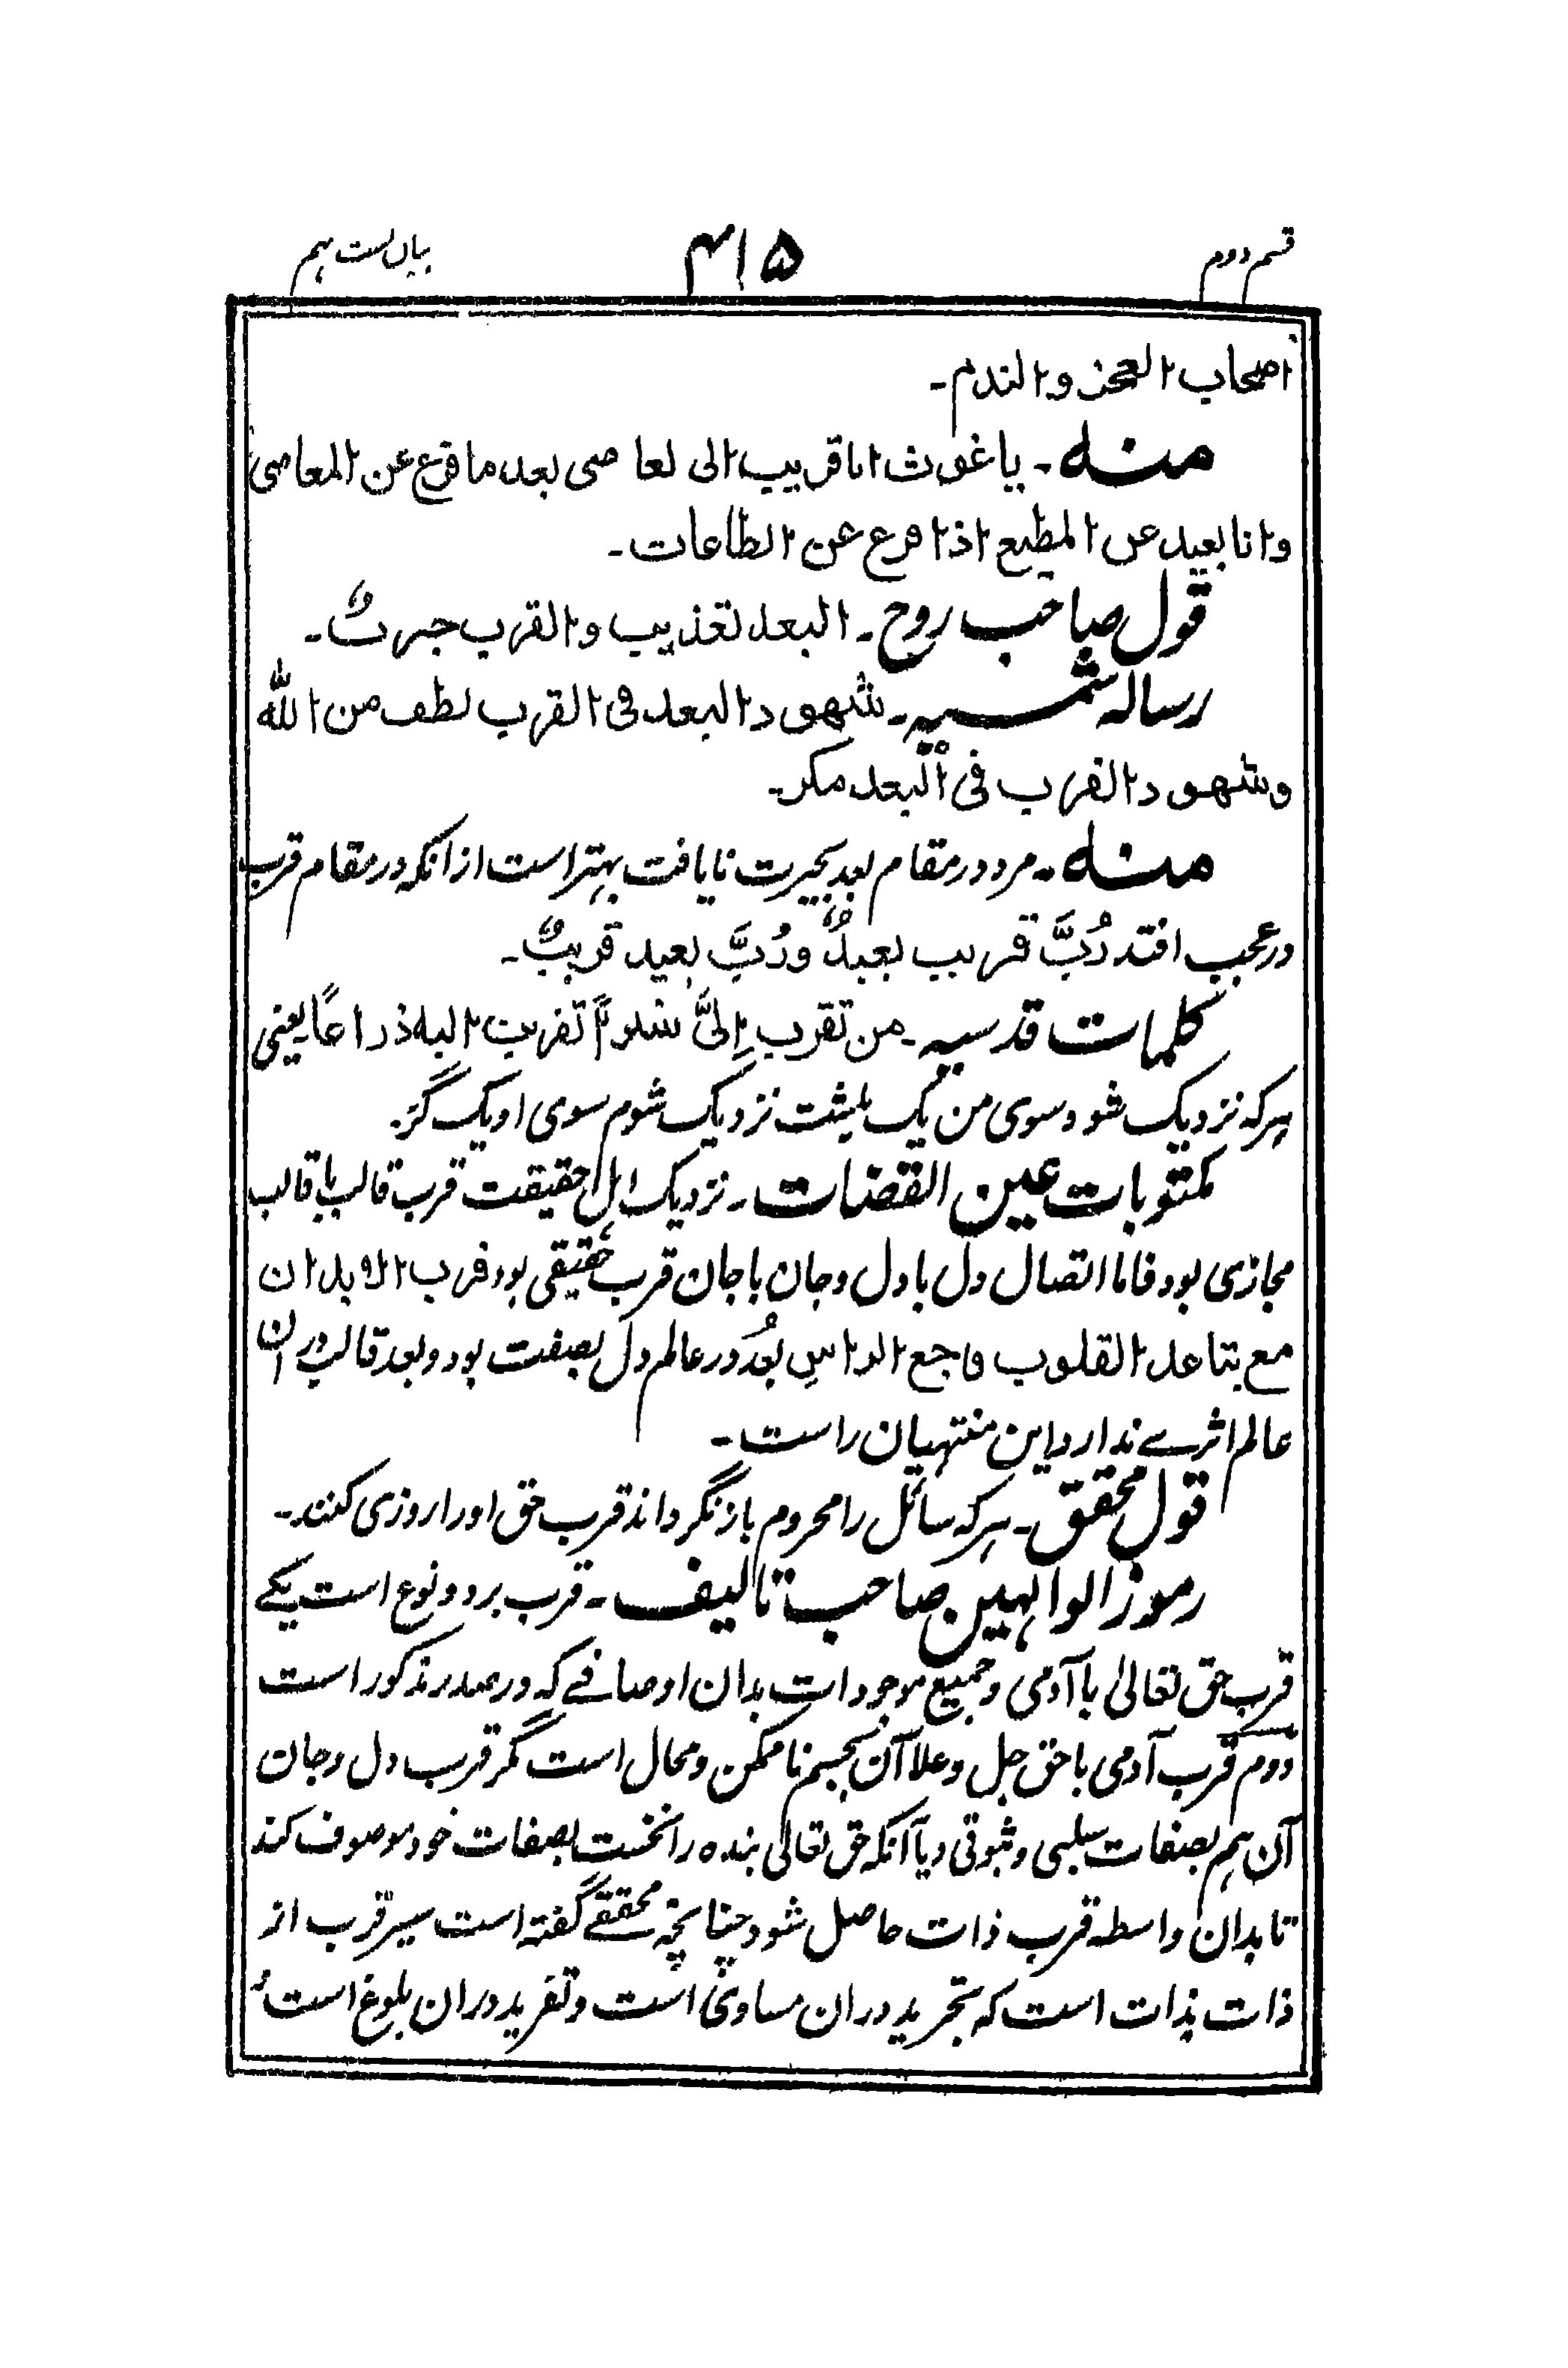 قسم دوم ۴۱۵ بیان لست ہم
اصحاب العجز والندم۔
منہ۔ یا غوث انا قریب الی لعاصی بعد ما فرغ عن المعاصی
وانا بعید عن المطیع اذا فرغ عن الطاعات۔
قول صاحب روح۔ البعد تعذیب والقرب
رسالہ شمسیہ۔ شھود البعد فی القرب لطف من اللّٰہ
وشھود القرب فی البعد مکر۔
منہ۔ مرد در مقام بعد بحیرت نایافت بہتر است ازانکہ در مقام قرب
در عجب افتد رُبَّ قریب بعیدٌ ورُبَّ بعید قریبٌ۔
کلمات قدسیہ۔ من تقرب اِلیَّ شبرًا تقربت الیه ذراعاً یعنی
ہرکہ نزدیک شود سوی من یک بلیثت نزدیک شوم سوی او یک گز۔
مکتوبات عین القضات۔ نزدیک اہل حقیقت قرب قالب با قالب
مجازی بود فاما اتصال دل با دل وجان با جان قرب حقیقی بود قرب الابدان
مع تباعد القلوب بُعد در عالم دل بصفت بود وبعد قالب دران
عالم اثرے ندارد این منتہیان راست۔
قول محقق۔ ہرکہ سائل را محروم باز نگرداند قرب حق اورا روزی کنند۔
رموز الوالہین صاحب تالیف۔ قرب بر دو نوع است یکے
قرب حق تعالیٰ با آدمی وجمیع موجودات بدان اوصافے کہ در صدر مذکور است
دوم قرب آدمی با حق جل وعلا آن بجسم ناممکن ومحال است مگر قرب دل وجان
آن ہم بصفات سلبی وثبوتی ویا آنکہ حق تعالی بندہ را نخست بصفات خود موصوف کند
تا بدان واسطہ قرب ذات حاصل شود چنانچہ محققے گفتہ است سیر قرب از
ذات بذات است کہ تجرید دران مساوی است وتفرید دران بلوغ است